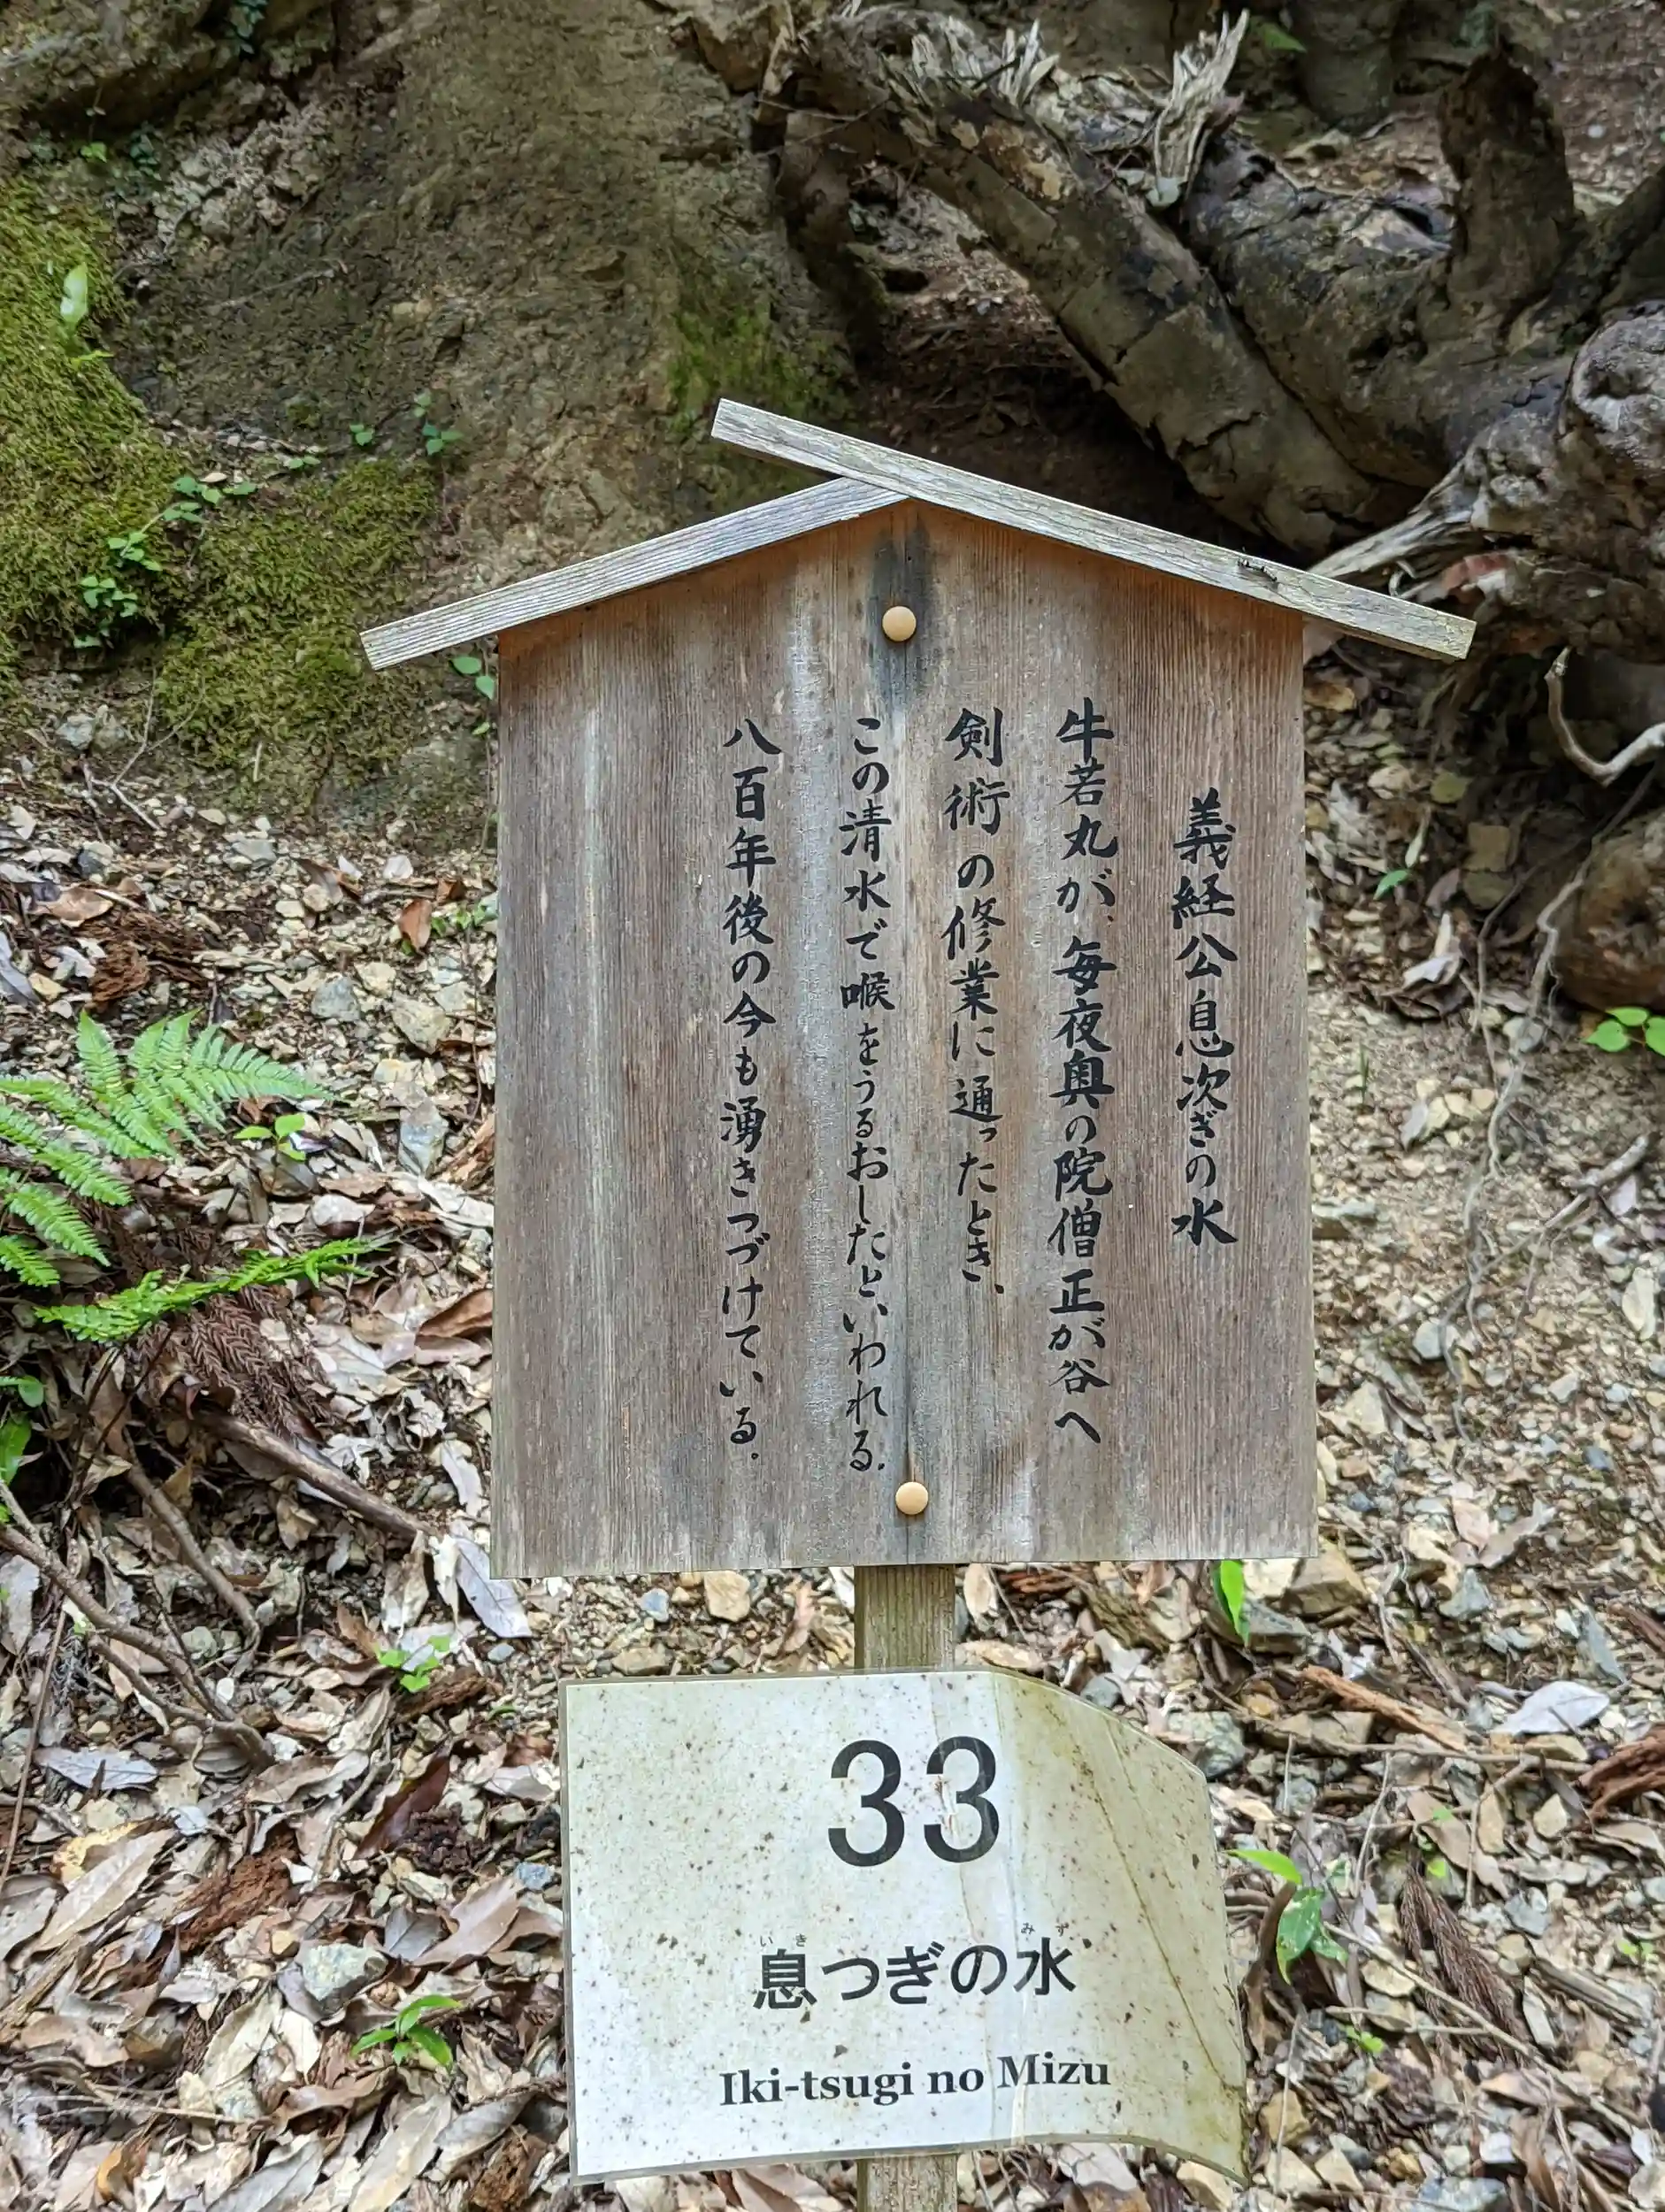 義経公息次ぎの水
牛若丸が、毎夜奥の院僧正が谷へ
剣術の修業に通ったとき、
この清水で喉をうるおしたといわれる。
八百年後の今も湧きつづけている。
33
いき みず
息つぎの水
Iki-tsugi no Mizu